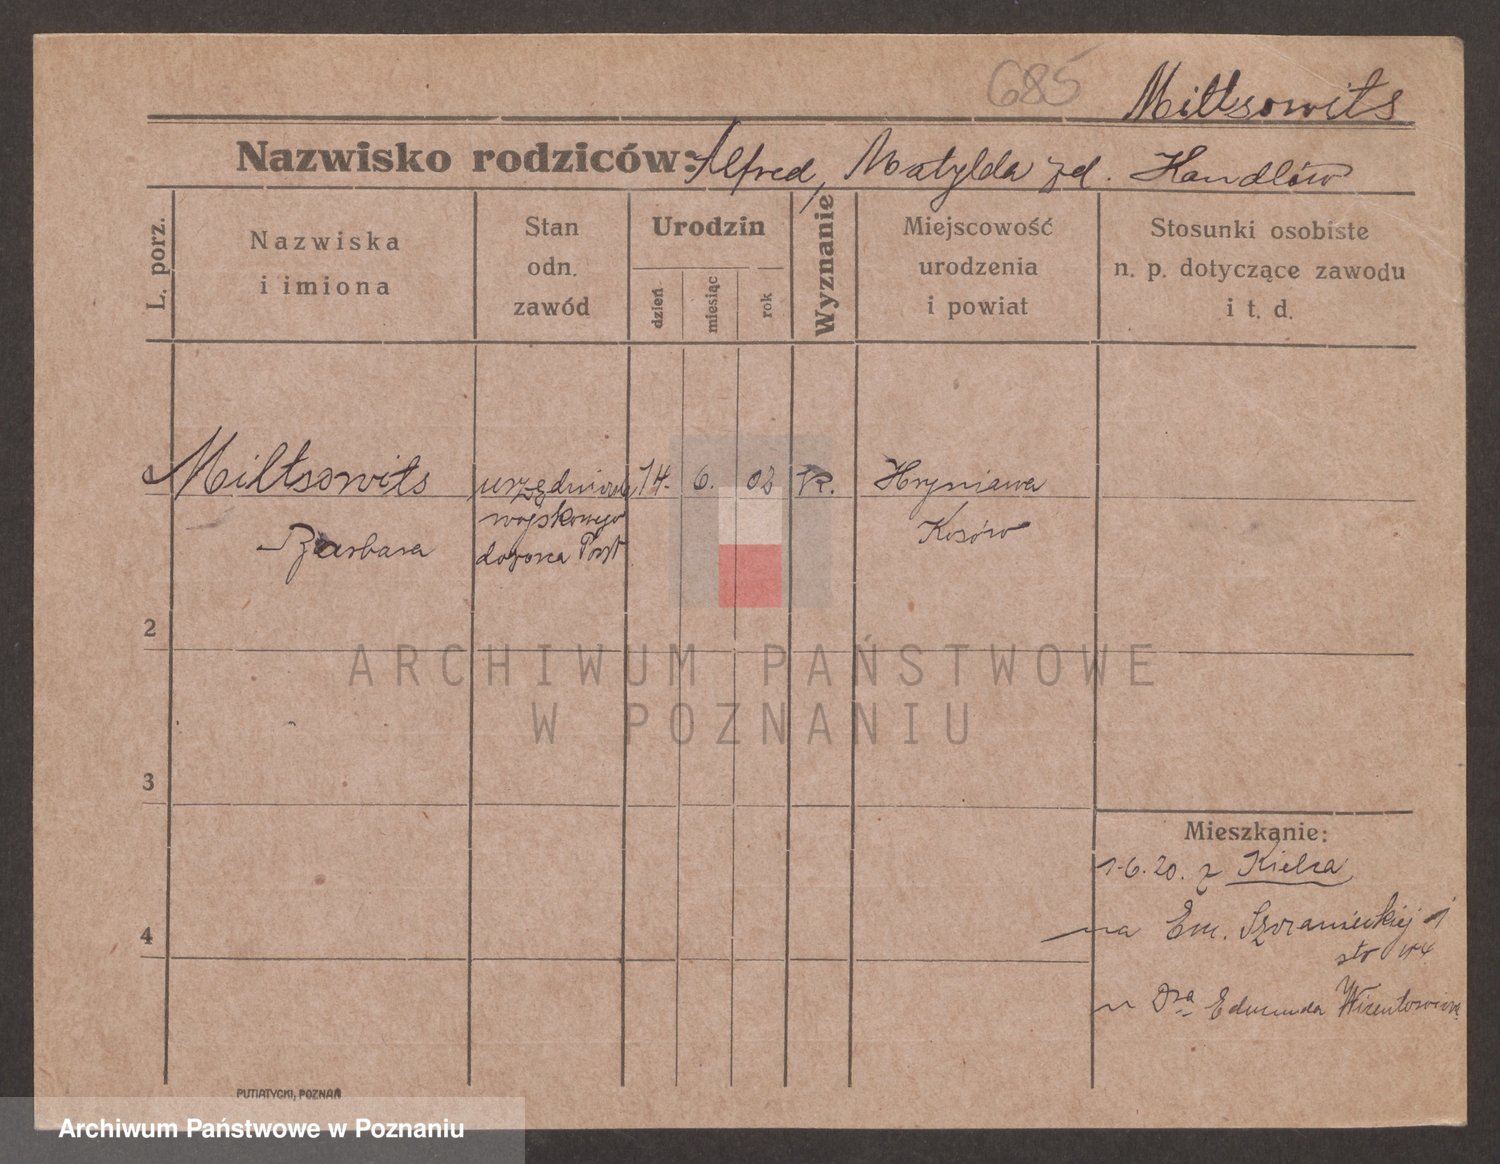 685
Miltsowits
Nazwisko rodziców: Alfred, Matylda zd. Handlów
L. porz.
Nazwiska
i imiona
Stan
odn.
zawód
Urodzin
dzień
miesiąc
rok
Wyznanie
Miejscowość
urodzenia
i powiat
Stosunki osobiste
n. p. dotyczące zawodu
i t. d.
Miltsowits
Barbara
wojskowego
14. 6. 02 R.
Hryniawa
Kosów
2
3
4
Mieszkanie:
1.6.20. z Kielca
na Em. Szczanieckiej
nr 4
u Dra Edmunda
PUTIATYCKI, POZNAŃ
ARCHIWUM PAŃSTWOWE
W POZNANIU
Archiwum Państwowe w Poznaniu